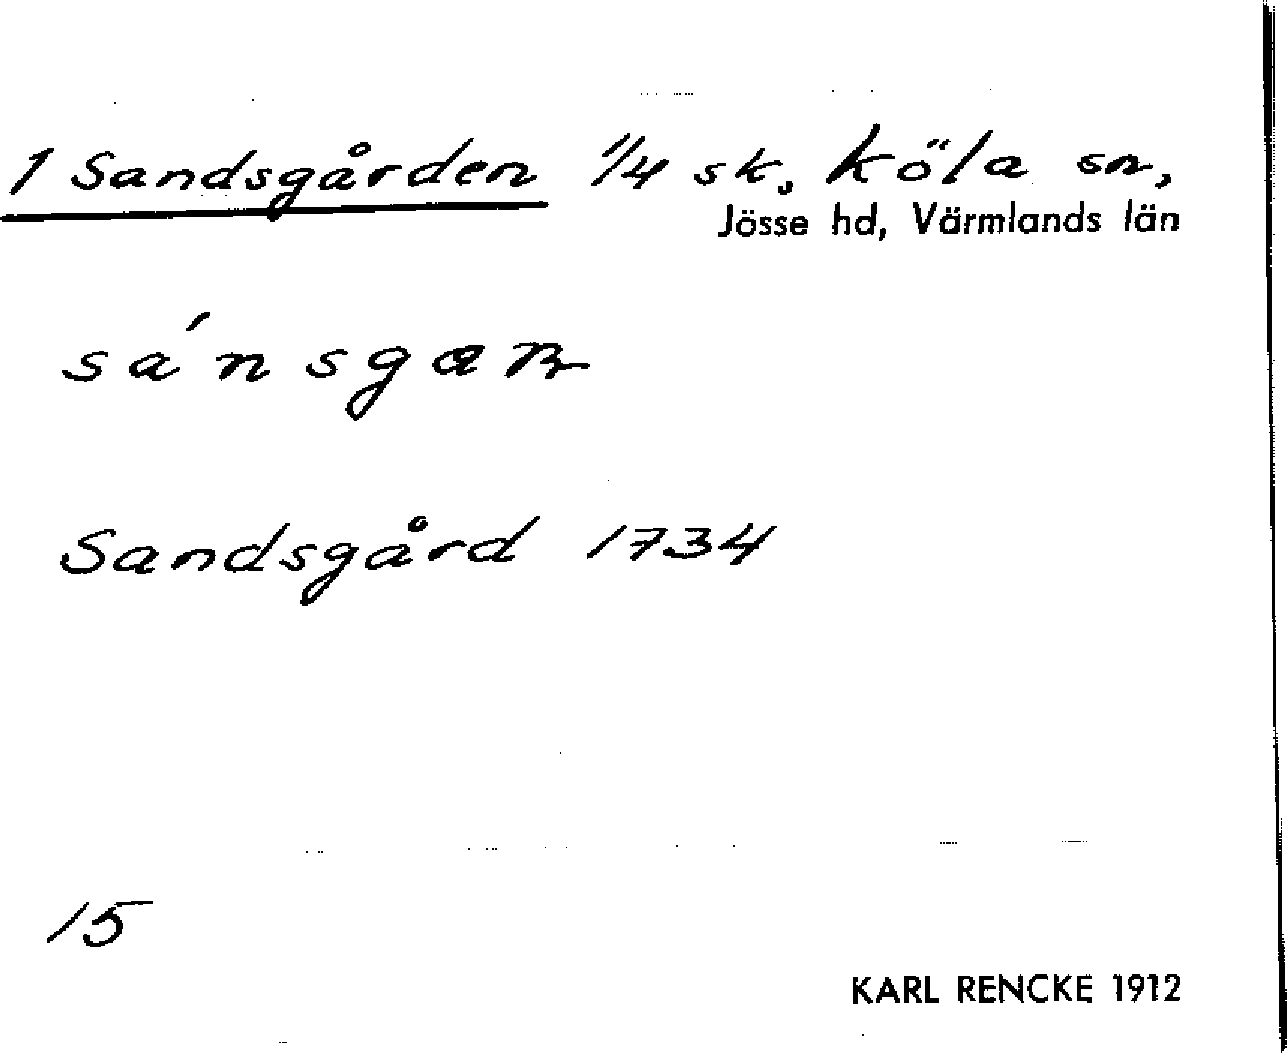 1 Sandsgården 1/4 sk. Köla sn,
Jösse hd, Värmlands län
Sandsgård 1734
15
KARL RENCKE 1912